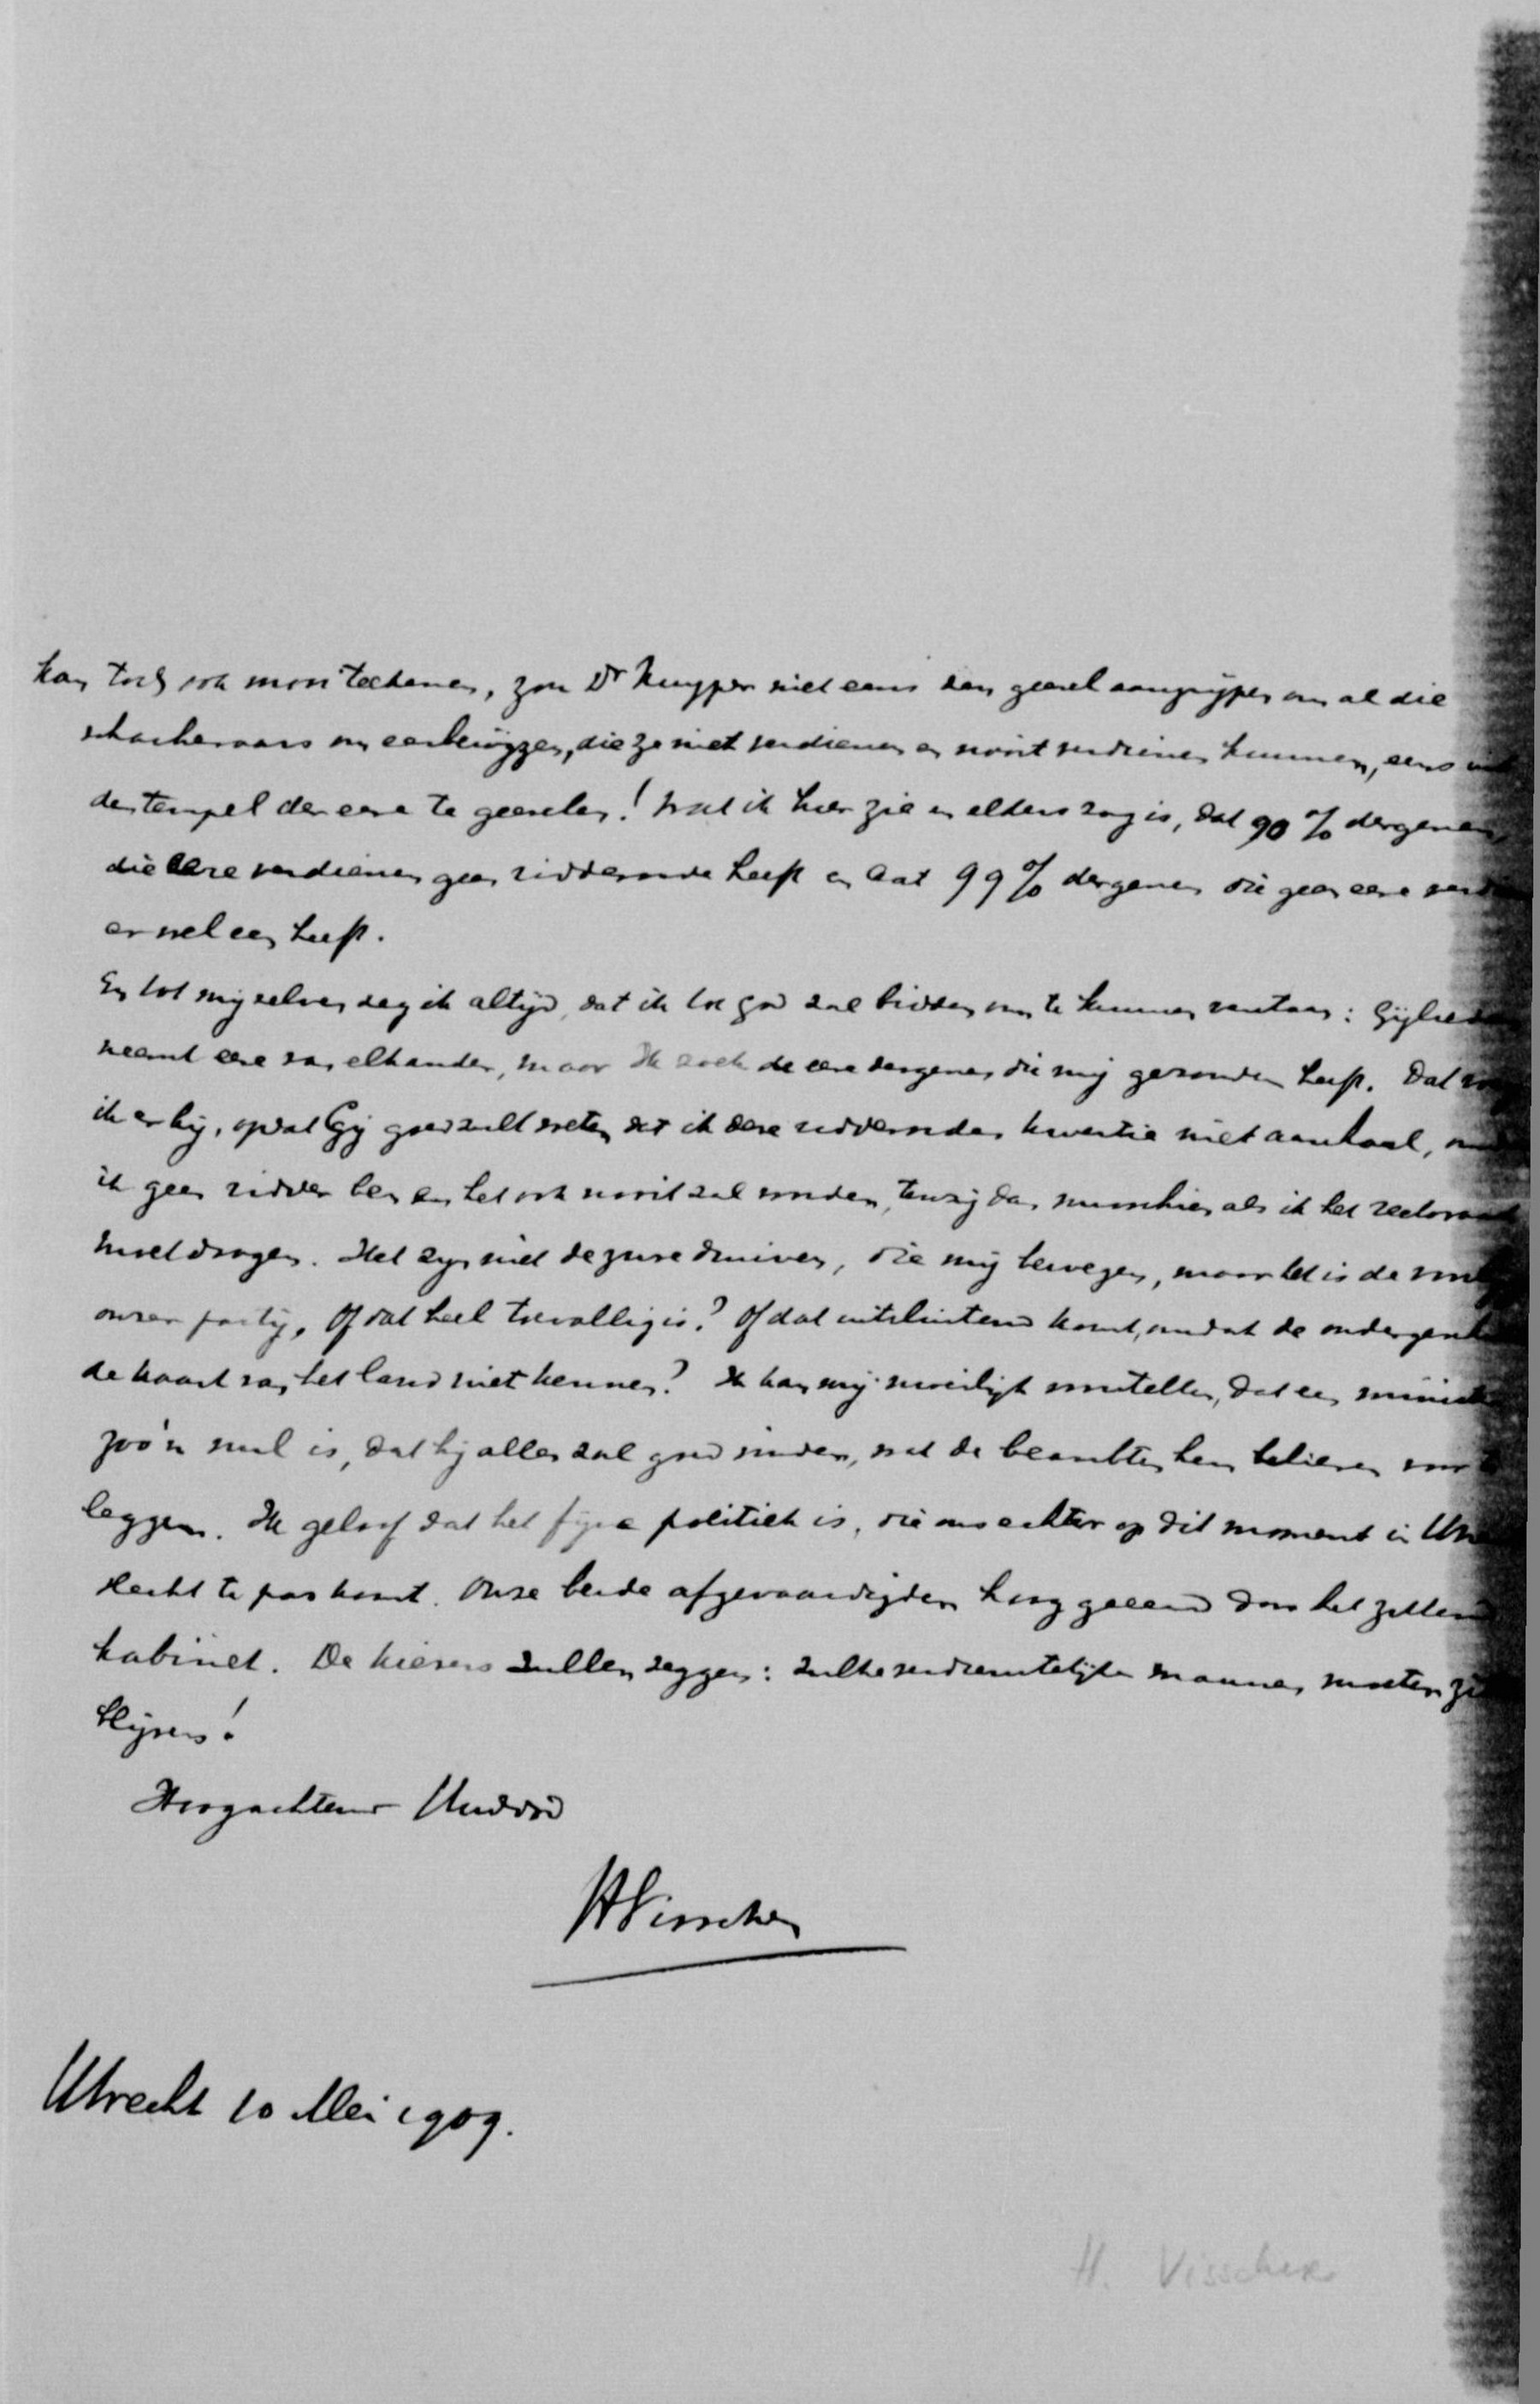 kan toch ook mooi teekenen, zou Dr Kuyper niet eens den geesel aangrijpen om al die
schacheraars om eerbewijzen, die ze niet verdienen en nooit verdienen kunnen, eens uit
den tempel der eere te geeselen! Wat ik hier zie en elders zag is, dat 90 % dergenen
die eere verdienen geen ridderorde heeft en dat 99 % dergenen die geen eere
er wel een heeft.
En tot mijzelven zeg ik altijd, dat ik tot God zal bidden om te kunnen verstaan: Gijlieden
neemt eere van elkander, maar Ik zoek de eere desgenen die mij gezonden heeft. Dat
ik er bij, opdat Gij goed zult weten dat ik deze ridderorden kwestie niet aanhaal,
ik geen ridder ben en het ook nooit zal worden, tenzij dan misschien als ik het rectoraat
moet dragen. Het zijn niet de zure druiven, die mij bewegen, maar het is de
onzer partij. Of dat heel toevallig is? Of dat uitsluitend komt, omdat de
de kaart van het land niet kennen? Ik kan mij moeilijk voorstellen, dat een
zoo'n nul is, dat hij alles zal goed vinden, wat de beambten hem believen voor te
leggen. Ik geloof dat het fijne politiek is, die ons echter op dit moment in
slecht te pas komt. Onze beide afgevaardigden hoog geëerd door het zittend
kabinet. De kiezers zullen zeggen: zulke verdienstelijke mannen moeten
blijven!
Hoogachtend Uwdwd
HVisscher
Utrecht 10 Mei 1909.
H. Visscher